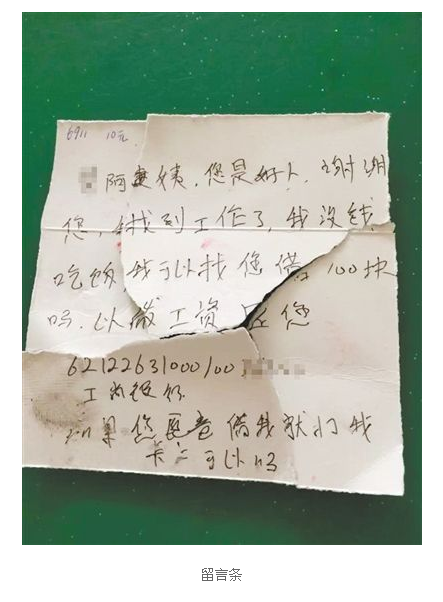 6911 10元
阿姨,您是好人.谢谢
您,我找到工作了,我没钱
吃饭我可以找您借 100块
吗.以后工资 还您
62122631000100
工商银行
如果您愿意借我就打我
卡上可以吗
留言条